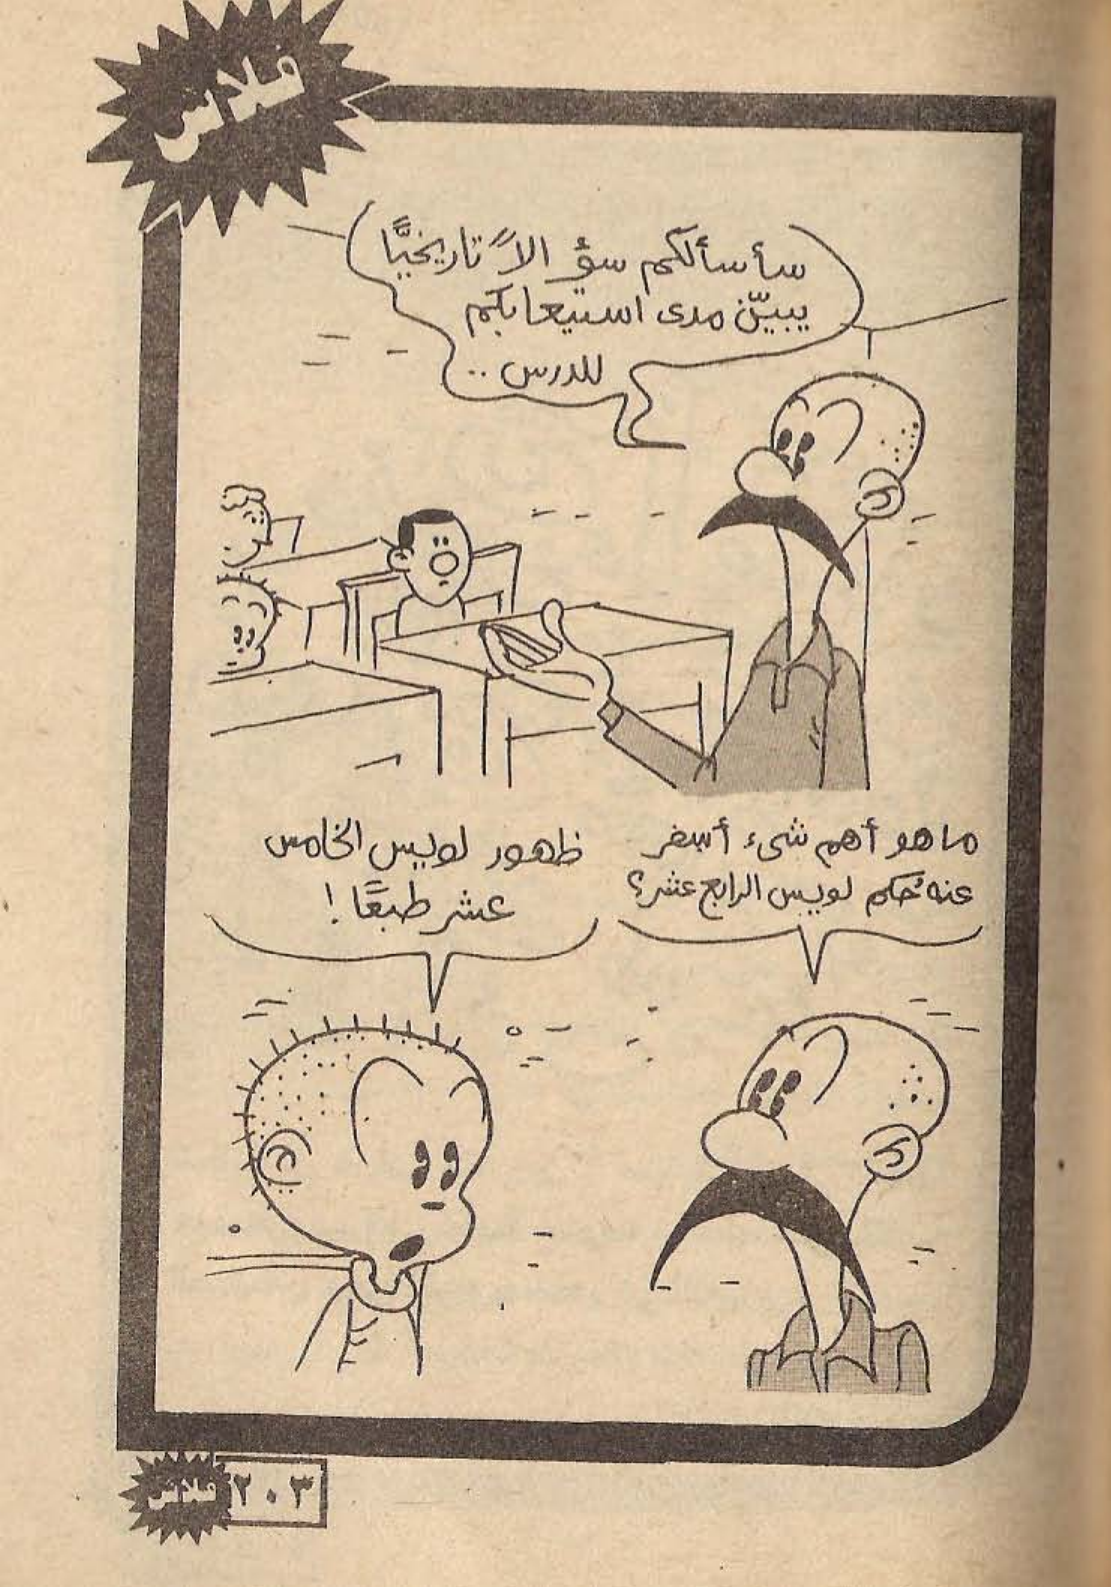 فلاش
سأسألكم سؤالاً تاريخيًّا
يبيّن مدى استيعابكم
للدرس ..
ما هو أهم شىء أسفر
عنه حُكم لويس الرابع عشر؟
ظهور لويس الخامس
عشر طبعًا !
٢٠٣
فلاش